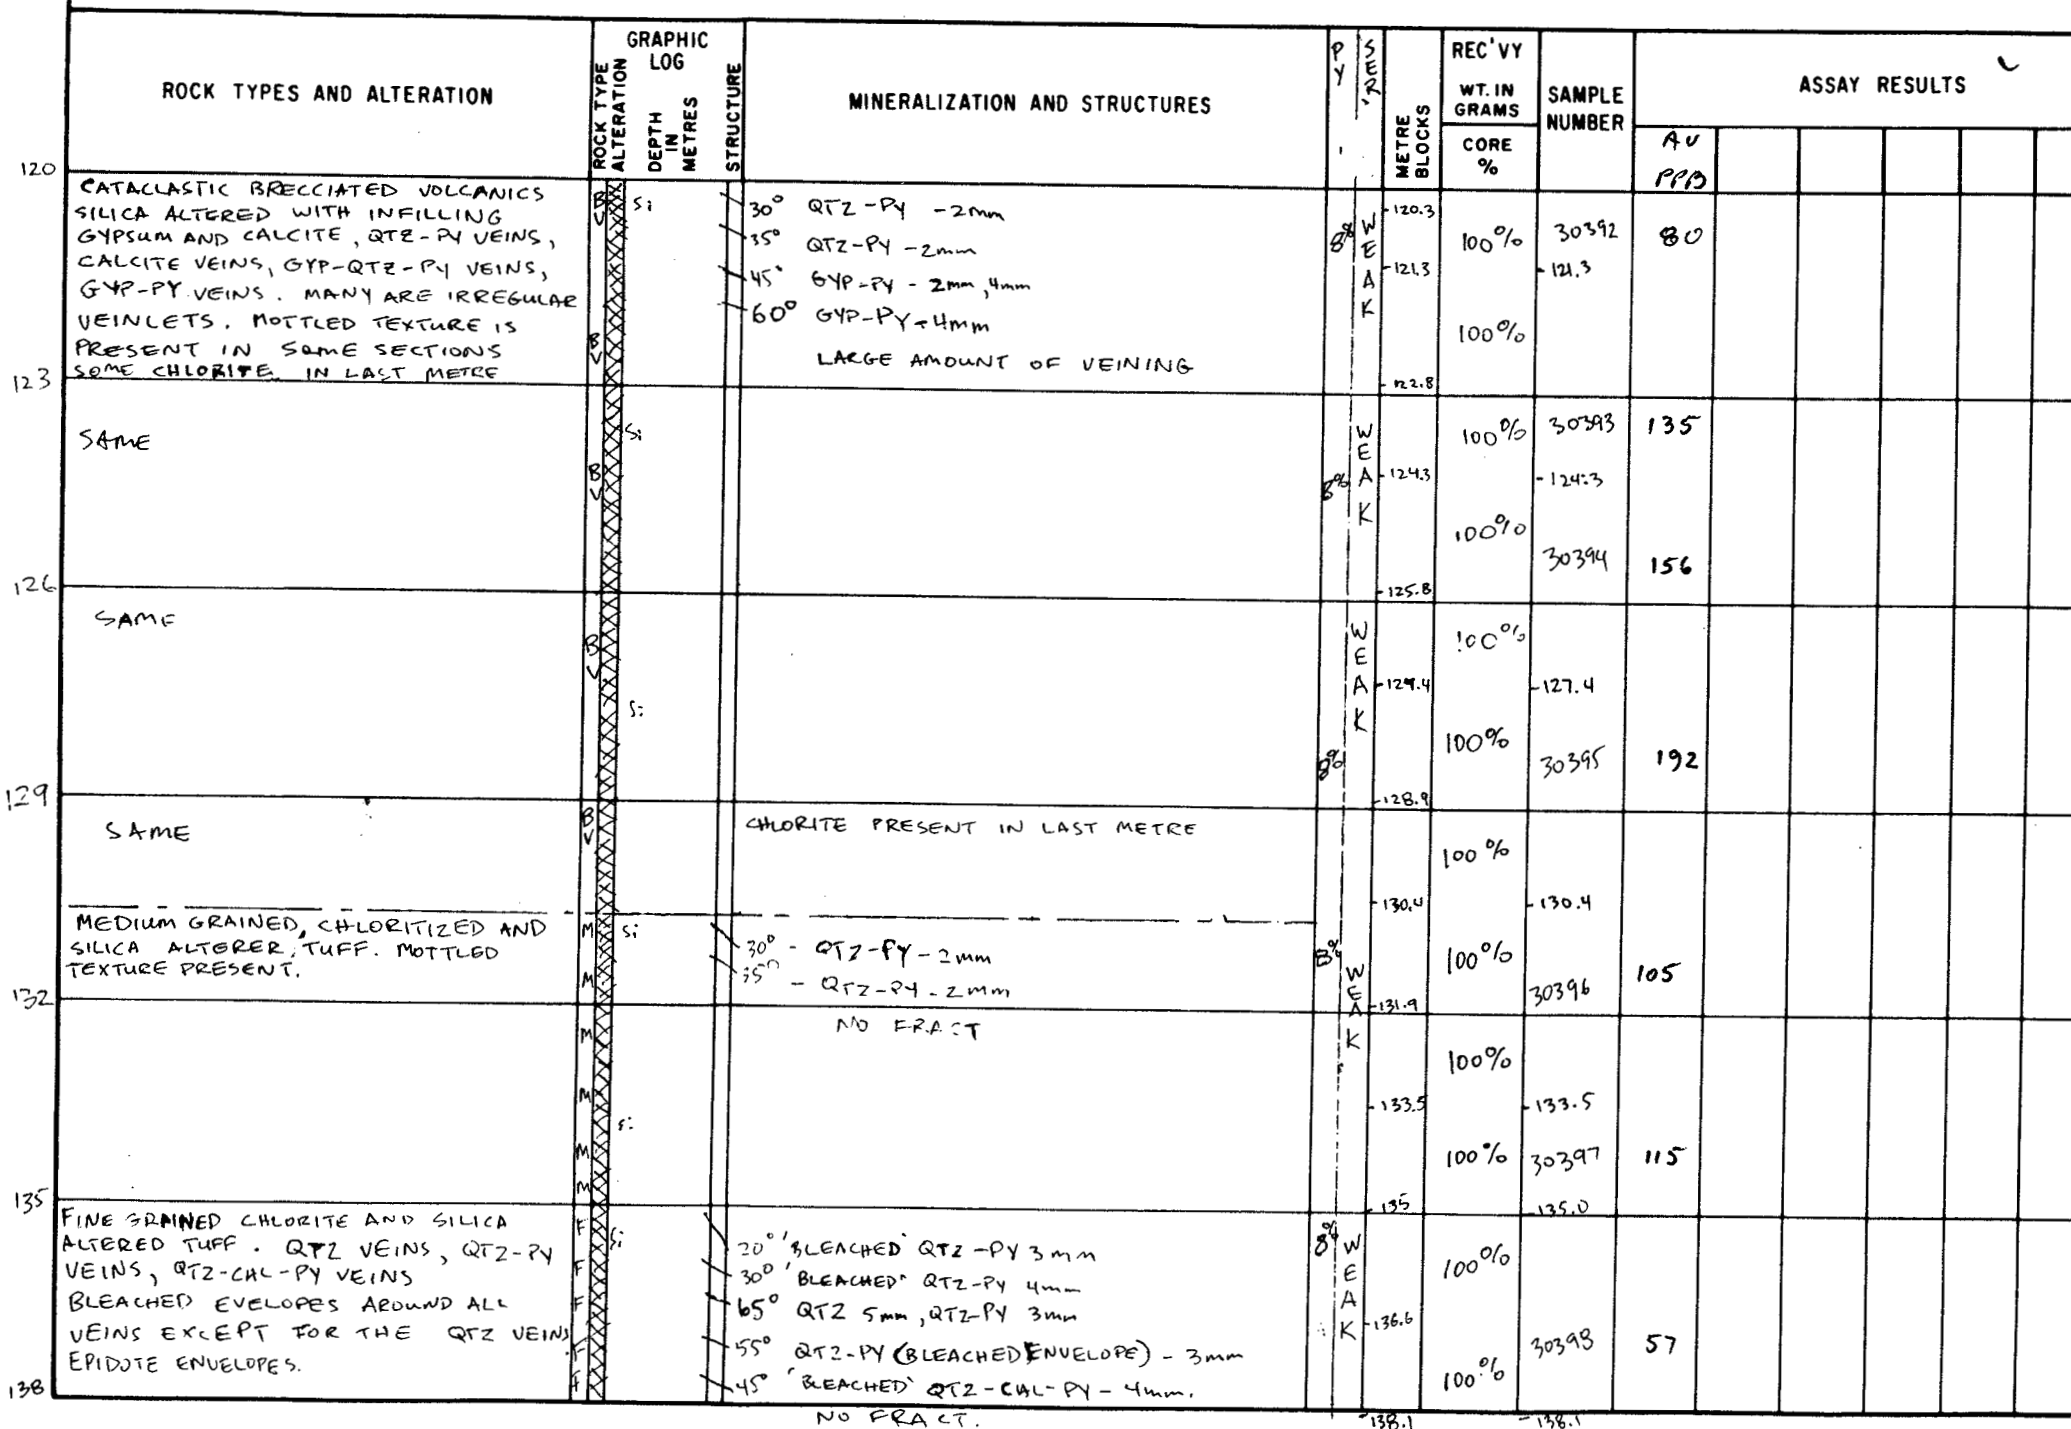 ROCK TYPES AND ALTERATION
GRAPHIC LOG
ROCK TYPE
ALTERATION
DEPTH IN METRES
STRUCTURE
MINERALIZATION AND STRUCTURES
PY
SER.
METRE BLOCKS
REC'VY
WT. IN GRAMS
CORE %
SAMPLE NUMBER
ASSAY RESULTS
AU
PPB
120
CATACLASTIC BRECCIATED VOLCANICS
SILICA ALTERED WITH INFILLING
GYPSUM AND CALCITE, QTZ-PY VEINS,
CALCITE VEINS, GYP-QTZ-PY VEINS,
GYP-PY VEINS. MANY ARE IRREGULAR
VEINLETS. MOTTLED TEXTURE IS
PRESENT IN SOME SECTIONS
SOME CHLORITE IN LAST METRE
BV
Si
BV
30° QTZ-PY - 2mm
35° QTZ-PY - 2mm
45° GYP-PY - 2mm, 4mm
60° GYP-PY - 4mm
LARGE AMOUNT OF VEINING
8%
WEAK
120.3
121.3
122.8
100%
100%
30392
121.3
80
123
SAME
Si
BV
8%
WEAK
124.3
125.8
100%
100%
30393
124.3
30394
135
156
126
SAME
BV
Si
8%
WEAK
127.4
128.9
100%
100%
127.4
30395
192
129
SAME
BV
CHLORITE PRESENT IN LAST METRE
100%
130.4
130.4
MEDIUM GRAINED, CHLORITIZED AND
SILICA ALTERER, TUFF. MOTTLED
TEXTURE PRESENT.
M
Si
M
30° - QTZ-PY - 2mm
35° - QTZ-PY - 2mm
8%
WEAK
131.9
100%
30396
105
132
NO FRACT
M
M
Si
M
M
133.5
135
100%
100%
133.5
30397
135.0
115
135
FINE GRAINED CHLORITE AND SILICA
ALTERED TUFF. QTZ VEINS, QTZ-PY
VEINS, QTZ-CAL-PY VEINS
BLEACHED EVELOPES AROUND ALL
VEINS EXCEPT FOR THE QTZ VEINS
EPIDOTE ENVELOPES.
F
Si
F
F
F
F
20° 'BLEACHED' QTZ-PY 3mm
30° 'BLEACHED' QTZ-PY 4mm
65° QTZ 5mm, QTZ-PY 3mm
55° QTZ-PY (BLEACHED ENVELOPE) - 3mm
45° 'BLEACHED' QTZ-CAL-PY - 4mm.
NO FRACT.
8%
WEAK
136.6
138.1
100%
100%
30398
138.1
57
138